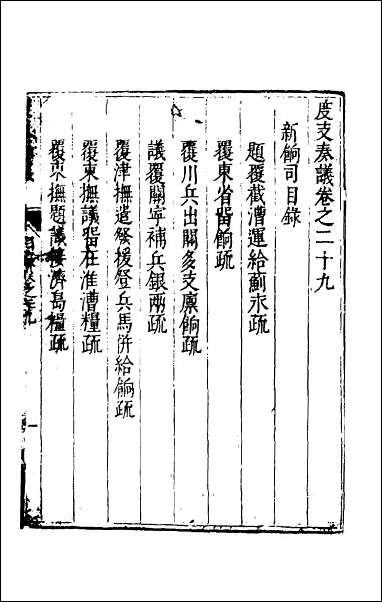 度支奏議卷之二十九
新餉司目錄
題覆截漕運給薊永疏
覆東省留餉疏
覆川兵出關多支廩餉疏
議覆關寧補兵銀兩疏
覆津撫遣發援登兵馬併給餉疏
覆東撫議留在淮漕糧疏
覆東撫題議接濟島糧疏